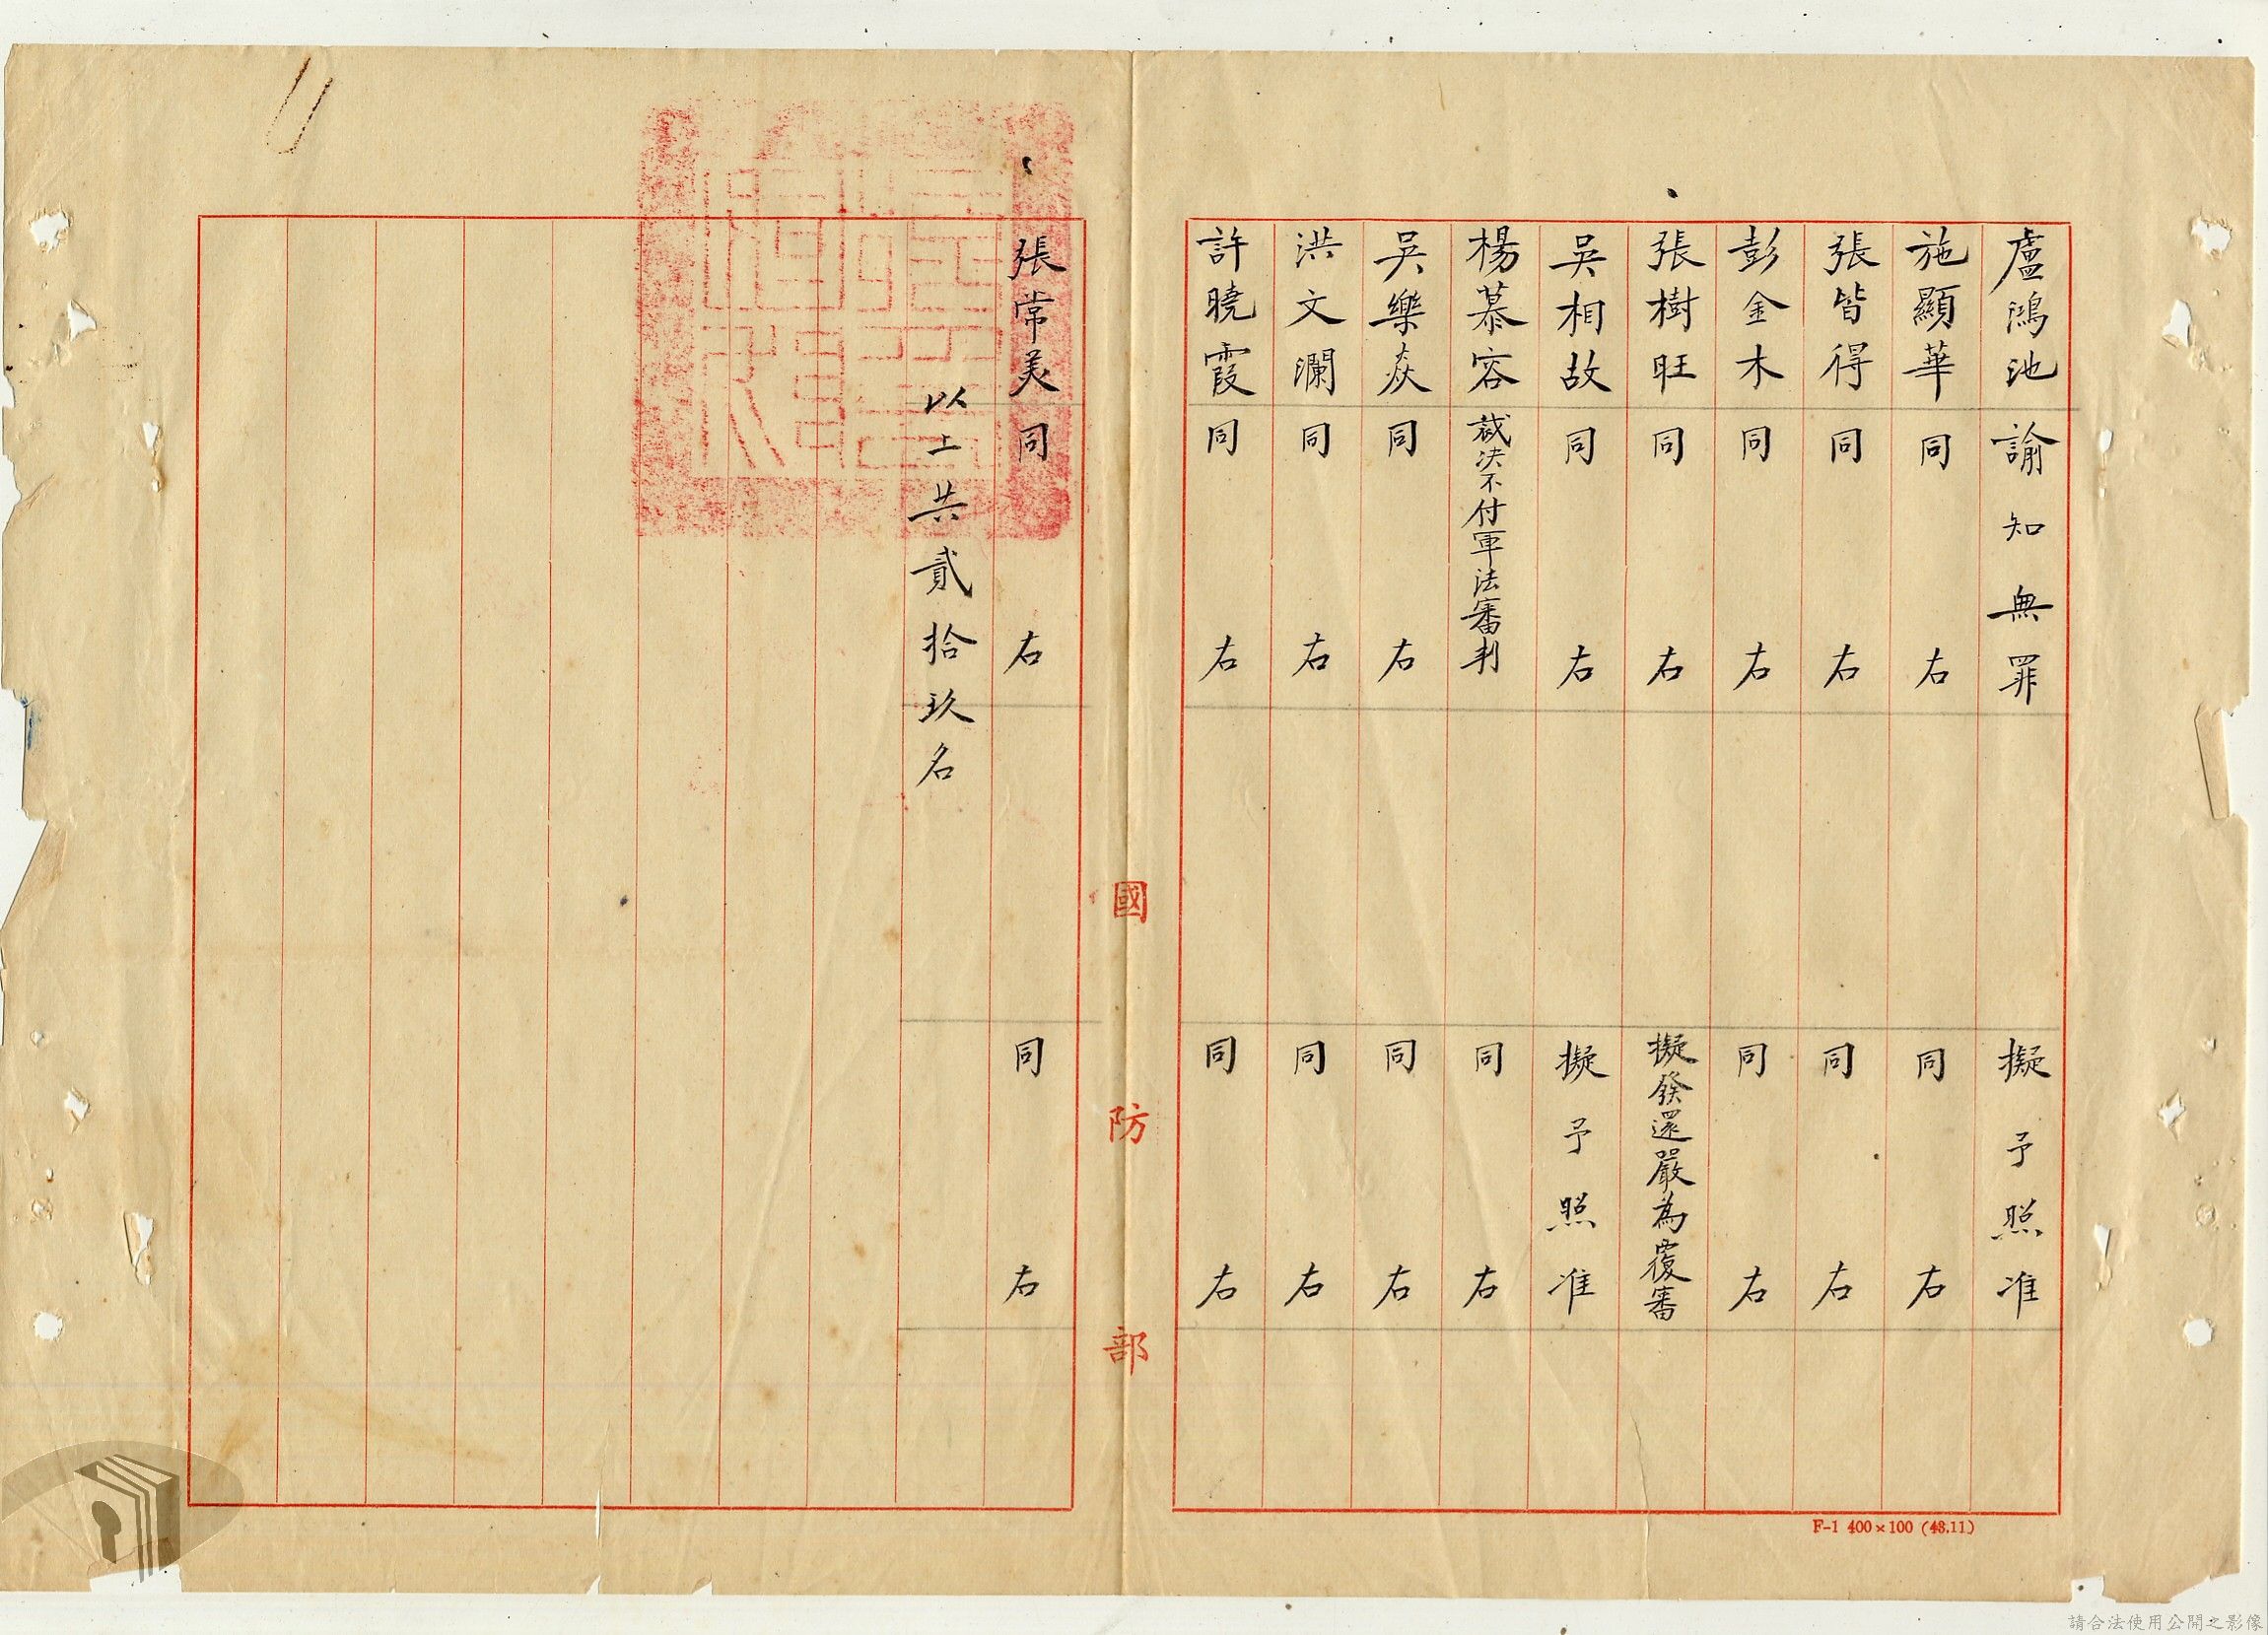 盧鴻池 諭知無罪 擬予照准
施顯華 同右 同右
張皆得 同右 同右
彭金木 同右 同右
張樹旺 同右 擬發還嚴為覆審
吳相故 同右 擬予照准
楊慕容 裁决不付軍法審判 同右
吳樂焱 同右 同右
洪文瀾 同右 同右
許曉霞 同右 同右
國防部
張常美 同右 同右
以上共貳拾玖名
F-1 400×100 (43.11)
請合法使用公開之影像